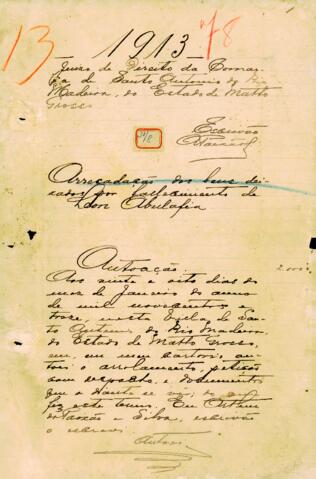 1
13
1913
78
Juizo de Direito da Comar-
ca de Santo Antonio do Rio
Madeira, do Estado de Matto
Grosso
Escrivão
Arrecadação dos bens dei-
xados por fallecimento de
Leon Abulafia
Autoação
Aos vinte e oito dias do
mez de Janeiro do anno
de mil novecentos e
treze, nesta Villa de San-
to Antonio do Rio Madeira
do Estado de Matto Grosso,
em meu cartorio, au-
tuei o arrolamento, petição
com despacho, e documentos
que adiante se vê; do que
fez este termo. Eu Arthur
e Silva, escrivão
o escrevi.